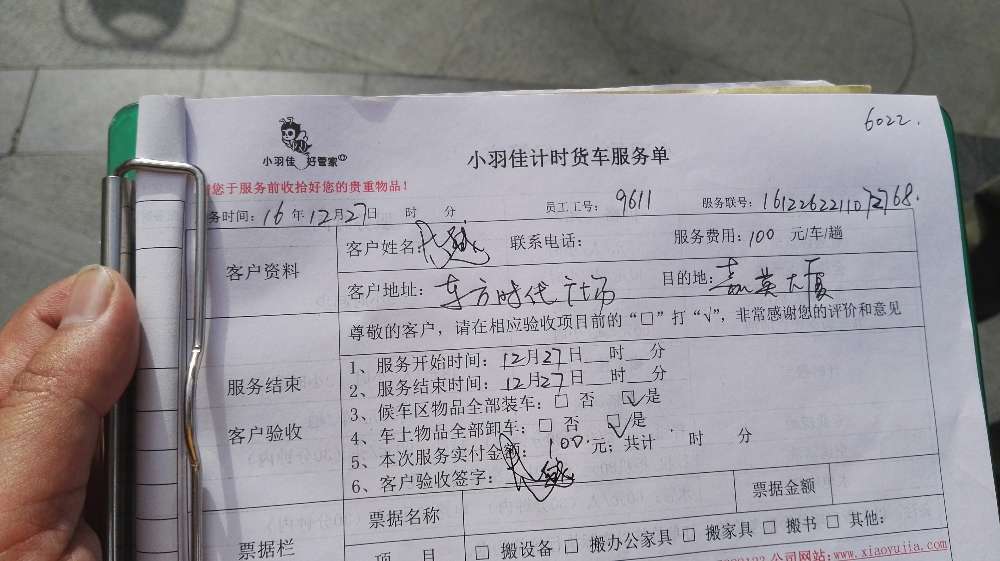 6022.
小羽佳 好管家
小羽佳计时货车服务单
您于服务前收拾好您的贵重物品！
务时间：16年12月27日 时 分 员工工号： 9611 服务联号：
客户资料
客户姓名： 联系电话： 服务费用：100 元/车/趟
客户地址： 东方时代广场 目的地： 嘉英大厦
服务结束
客户验收
尊敬的客户，请在相应验收项目前的“□”打“√”，非常感谢您的评价和意见
1、服务开始时间：12月27日___时___分
2、服务结束时间：12月27日___时___分
3、候车区物品全部装车：□ 否 ☑是
4、车上物品全部卸车：□ 否 ☑是
5、本次服务实付金额：100.元；共计 时 分
6、客户验收签字：
票据栏
票据名称 票据金额
项 目 □ 搬设备 □ 搬办公家具 □ 搬家具 □ 搬书 □ 其他：
公司网站：www.xiaoyujia.com